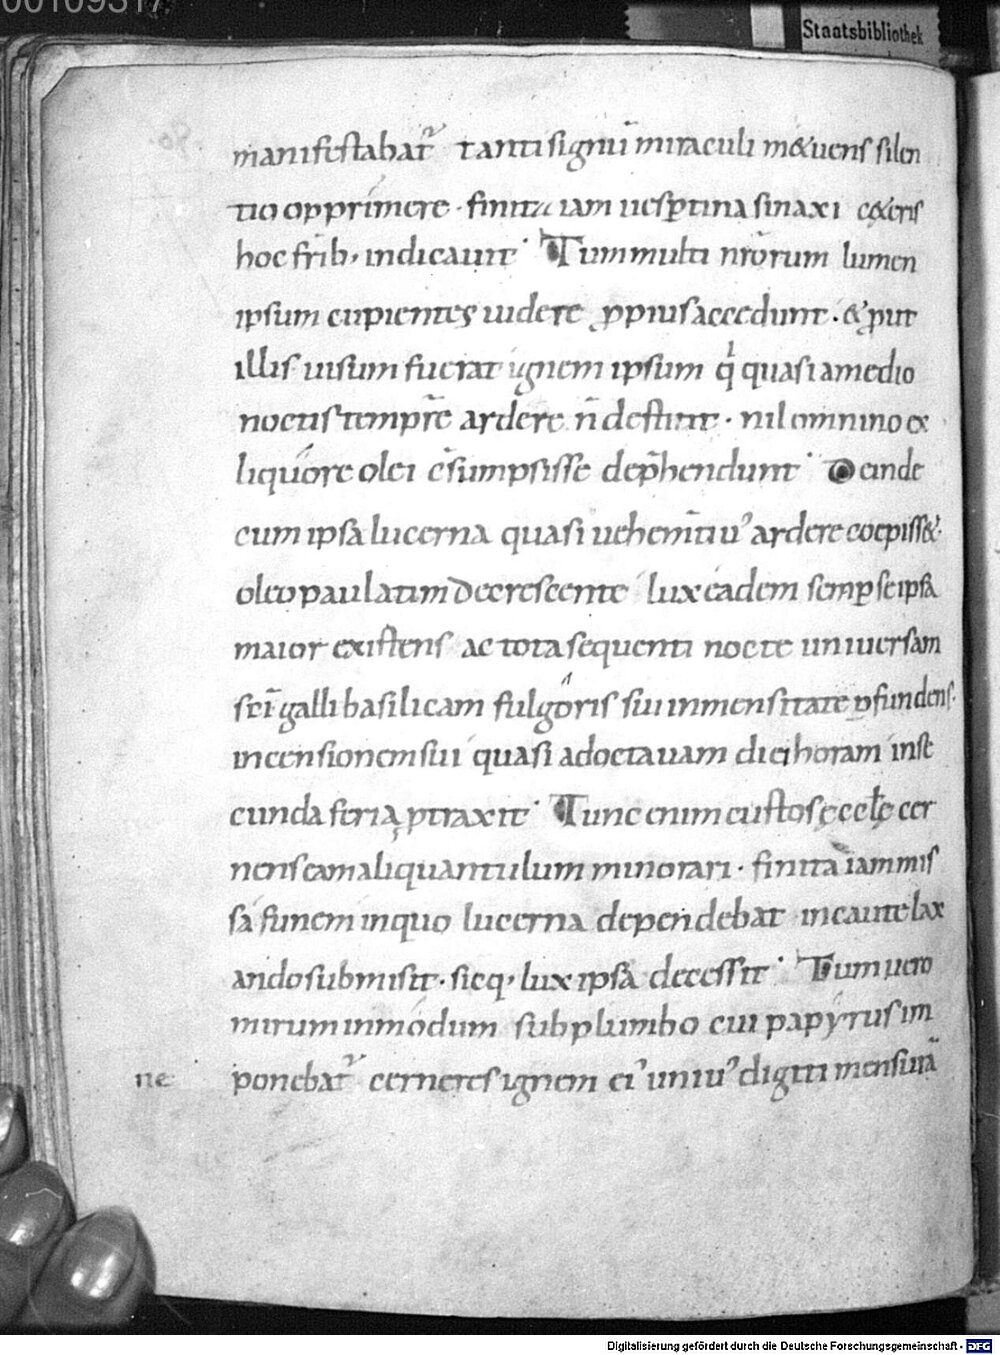 00109317
Staatsbibliothek
manifestabat᷑ tanti signū miraculi m&uens silen
tio opprimere · finita iam uesp̄tina sinaxi c&eris
hoc frīb; indicauit · Tum multi nr̄orum lumen
ipsum cupientes uidere ꝓpius accedunt · & put
illis uisum fuerat ignem ipsum qͥ quasi a medio
noctis temp̄re ardere n̄ destitit · nil omnino ex
liquore olei c̄sumpsisse dep̄hendunt · Deinde
cum ipsa lucerna quasi uehem̄tiuꝰ ardere coepiss&·
oleo paulatim decrescente lux eadem semꝑ se ipsa
maior existens ac tota sequenti nocte uniuersam
sc̄i galli basilicam fulgoris sui inmensitate ꝑfundens·
incensionem sui quasi ad octauam diei horam in se
cunda feria ꝓtraxit · Tunc enim custos ęccłę cer
nens eam aliquantulum minorari · finita iam mis
sa funem in quo lucerna dependebat incaute lax
ando submisit · sicq; lux ipsa decessit · Tum uero
mirum in modum sub plumbo cui papyrus im
ne ponebat᷑ cerneres ignem eiꝰ uniuꝰ digiti mensurā
Digitalisierung gefördert durch die Deutsche Forschungsgemeinschaft - DFG